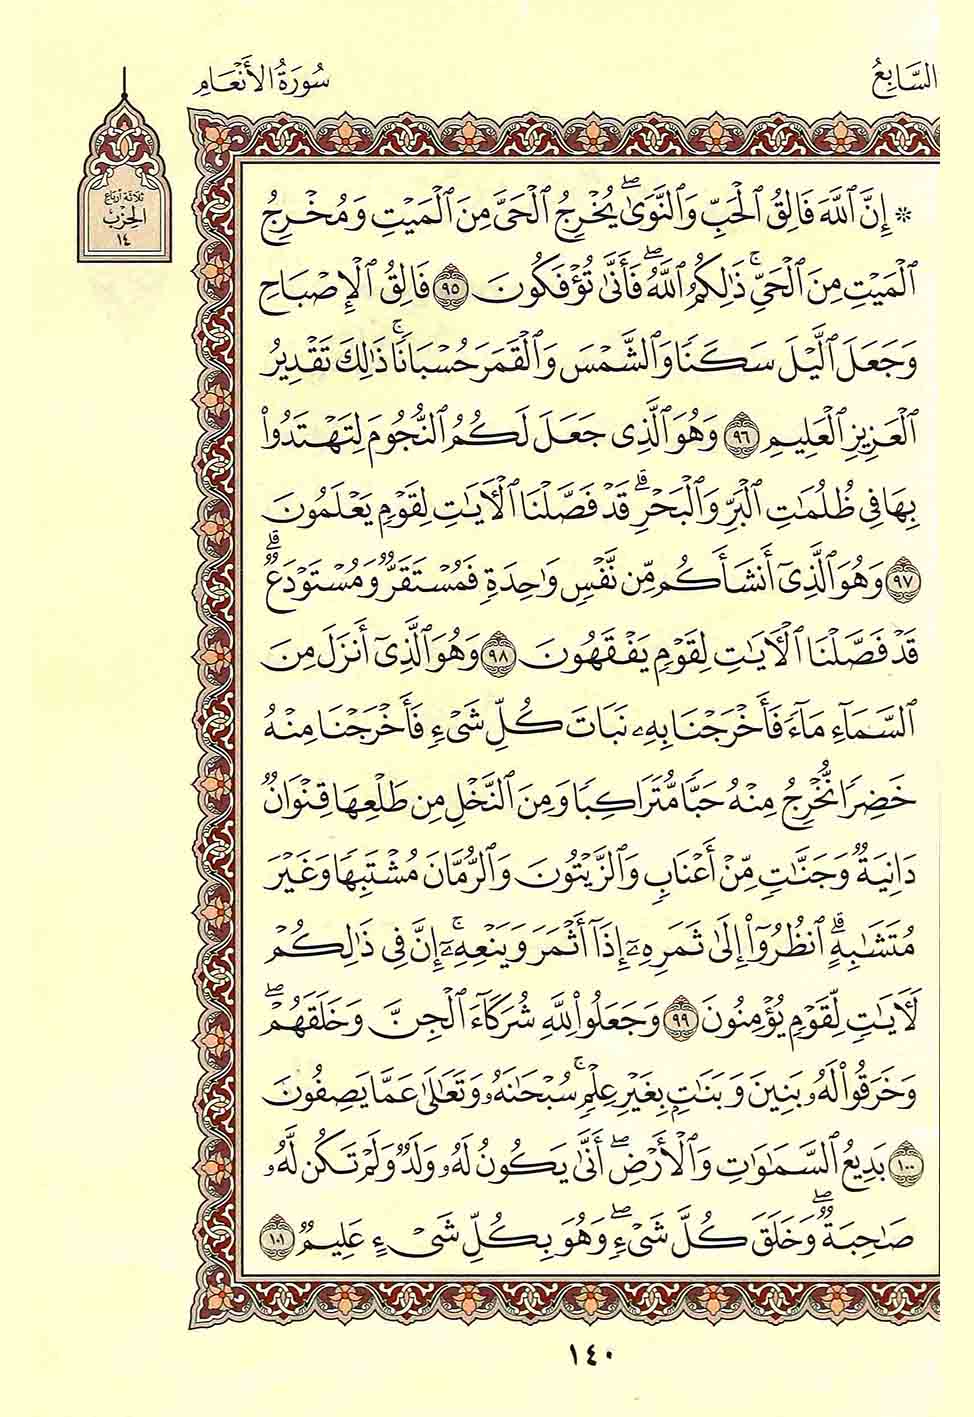 السَّابِعُ
سُورَةُ الأَنْعَام
ثلاثة أرباع
الحِزْب
١٤
۞ إِنَّ ٱللَّهَ فَالِقُ ٱلْحَبِّ وَٱلنَّوَىٰۖ يُخْرِجُ ٱلْحَىَّ مِنَ ٱلْمَيِّتِ وَمُخْرِجُ
ٱلْمَيِّتِ مِنَ ٱلْحَىِّۚ ذَٰلِكُمُ ٱللَّهُۖ فَأَنَّىٰ تُؤْفَكُونَ ٩٥ فَالِقُ ٱلْإِصْبَاحِ
وَجَعَلَ ٱلَّيْلَ سَكَنًا وَٱلشَّمْسَ وَٱلْقَمَرَ حُسْبَانًاۚ ذَٰلِكَ تَقْدِيرُ
ٱلْعَزِيزِ ٱلْعَلِيمِ ٩٦ وَهُوَ ٱلَّذِى جَعَلَ لَكُمُ ٱلنُّجُومَ لِتَهْتَدُوا۟
بِهَا فِى ظُلُمَٰتِ ٱلْبَرِّ وَٱلْبَحْرِۗ قَدْ فَصَّلْنَا ٱلْـَٔايَٰتِ لِقَوْمٍ يَعْلَمُونَ
٩٧ وَهُوَ ٱلَّذِىٓ أَنشَأَكُم مِّن نَّفْسٍ وَٰحِدَةٍ فَمُسْتَقَرٌّ وَمُسْتَوْدَعٌۗ
قَدْ فَصَّلْنَا ٱلْـَٔايَٰتِ لِقَوْمٍ يَفْقَهُونَ ٩٨ وَهُوَ ٱلَّذِىٓ أَنزَلَ مِنَ
ٱلسَّمَآءِ مَآءً فَأَخْرَجْنَا بِهِۦ نَبَاتَ كُلِّ شَىْءٍ فَأَخْرَجْنَا مِنْهُ
خَضِرًا نُّخْرِجُ مِنْهُ حَبًّا مُّتَرَاكِبًا وَمِنَ ٱلنَّخْلِ مِن طَلْعِهَا قِنْوَانٌ
دَانِيَةٌ وَجَنَّٰتٍ مِّنْ أَعْنَابٍ وَٱلزَّيْتُونَ وَٱلرُّمَّانَ مُشْتَبِهًا وَغَيْرَ
مُتَشَٰبِهٍۗ ٱنظُرُوٓا۟ إِلَىٰ ثَمَرِهِۦٓ إِذَآ أَثْمَرَ وَيَنْعِهِۦٓۚ إِنَّ فِى ذَٰلِكُمْ
لَـَٔايَٰتٍ لِّقَوْمٍ يُؤْمِنُونَ ٩٩ وَجَعَلُوا۟ لِلَّهِ شُرَكَآءَ ٱلْجِنَّ وَخَلَقَهُمْۖ
وَخَرَقُوا۟ لَهُۥ بَنِينَ وَبَنَٰتٍۭ بِغَيْرِ عِلْمٍۚ سُبْحَٰنَهُۥ وَتَعَٰلَىٰ عَمَّا يَصِفُونَ
١٠٠ بَدِيعُ ٱلسَّمَٰوَٰتِ وَٱلْأَرْضِۖ أَنَّىٰ يَكُونُ لَهُۥ وَلَدٌ وَلَمْ تَكُن لَّهُۥ
صَٰحِبَةٌۖ وَخَلَقَ كُلَّ شَىْءٍۖ وَهُوَ بِكُلِّ شَىْءٍ عَلِيمٌ ١٠١
١٤٠